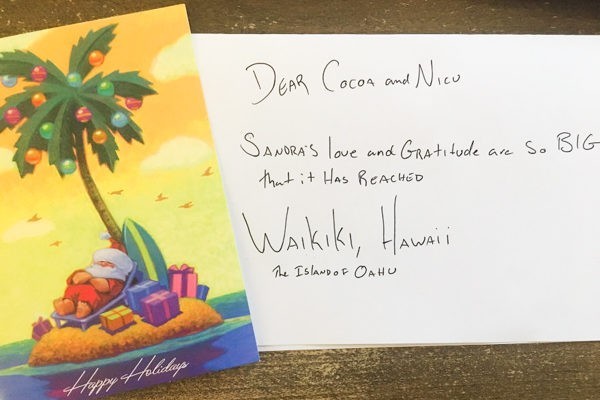 DEAR COCOA and NICU
SANDRA'S love and GRAtitude are So BIG
that it HAS REACHED
WAIKIKI, HAWAii
The ISLAND OF OAHU
Happy Holidays